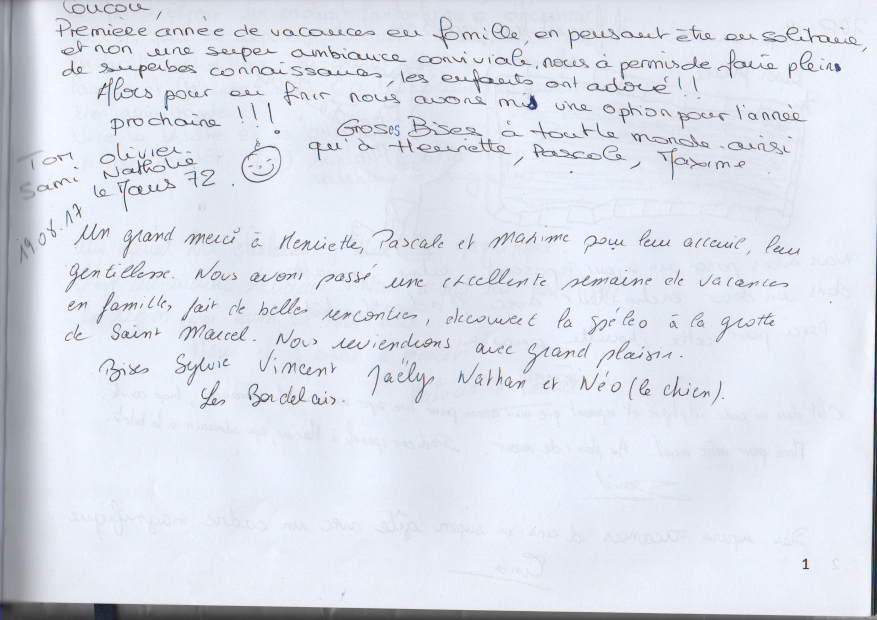 Coucou,
Première année de vacances en famille, en pensant être en solitaire,
et non une super ambiance conviviale, nous à permis de faire pleins
de superbes connaissances, les enfants ont adoré !!
Alors pour en finir nous avons mis une option pour l'année
prochaine !!!
Groses Bises à tout le monde ainsi
qu'à Henriette, Pascale, Maxime
Tom Olivier
Sami Nathalie
le Mans 72.
19.08.17
Un grand merci à Henriette, Pascale et Maxime pour leur acceuil, leur
gentillesse. Nous avons passé une excellente semaine de vacances
en famille, fait de belles rencontres, découvert la spéléo à la grotte
de Saint Marcel. Nous reviendrons avec grand plaisir.
Bises Sylvie Vincent Jaëlys Nathan et Néo (le chien).
Les Bordelais.
1